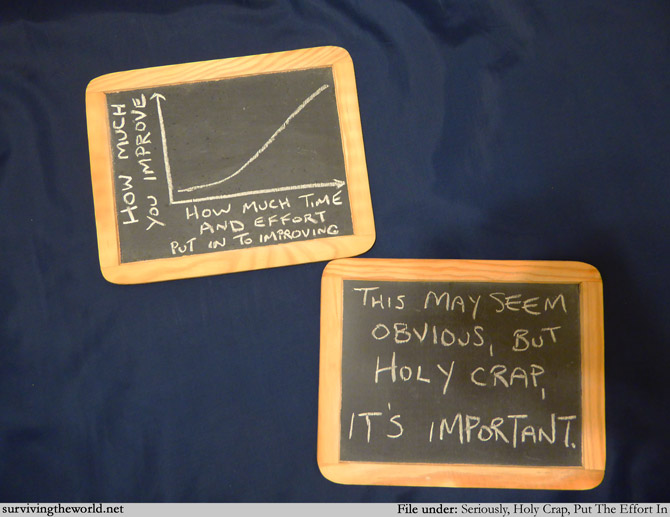 HOW MUCH
YOU IMPROVE
HOW MUCH TIME
AND EFFORT
PUT IN TO IMPROVING
THIS MAY SEEM
OBVIOUS, BUT
HOLY CRAP,
IT'S IMPORTANT.
survivingtheworld.net
File under: Seriously, Holy Crap, Put The Effort In